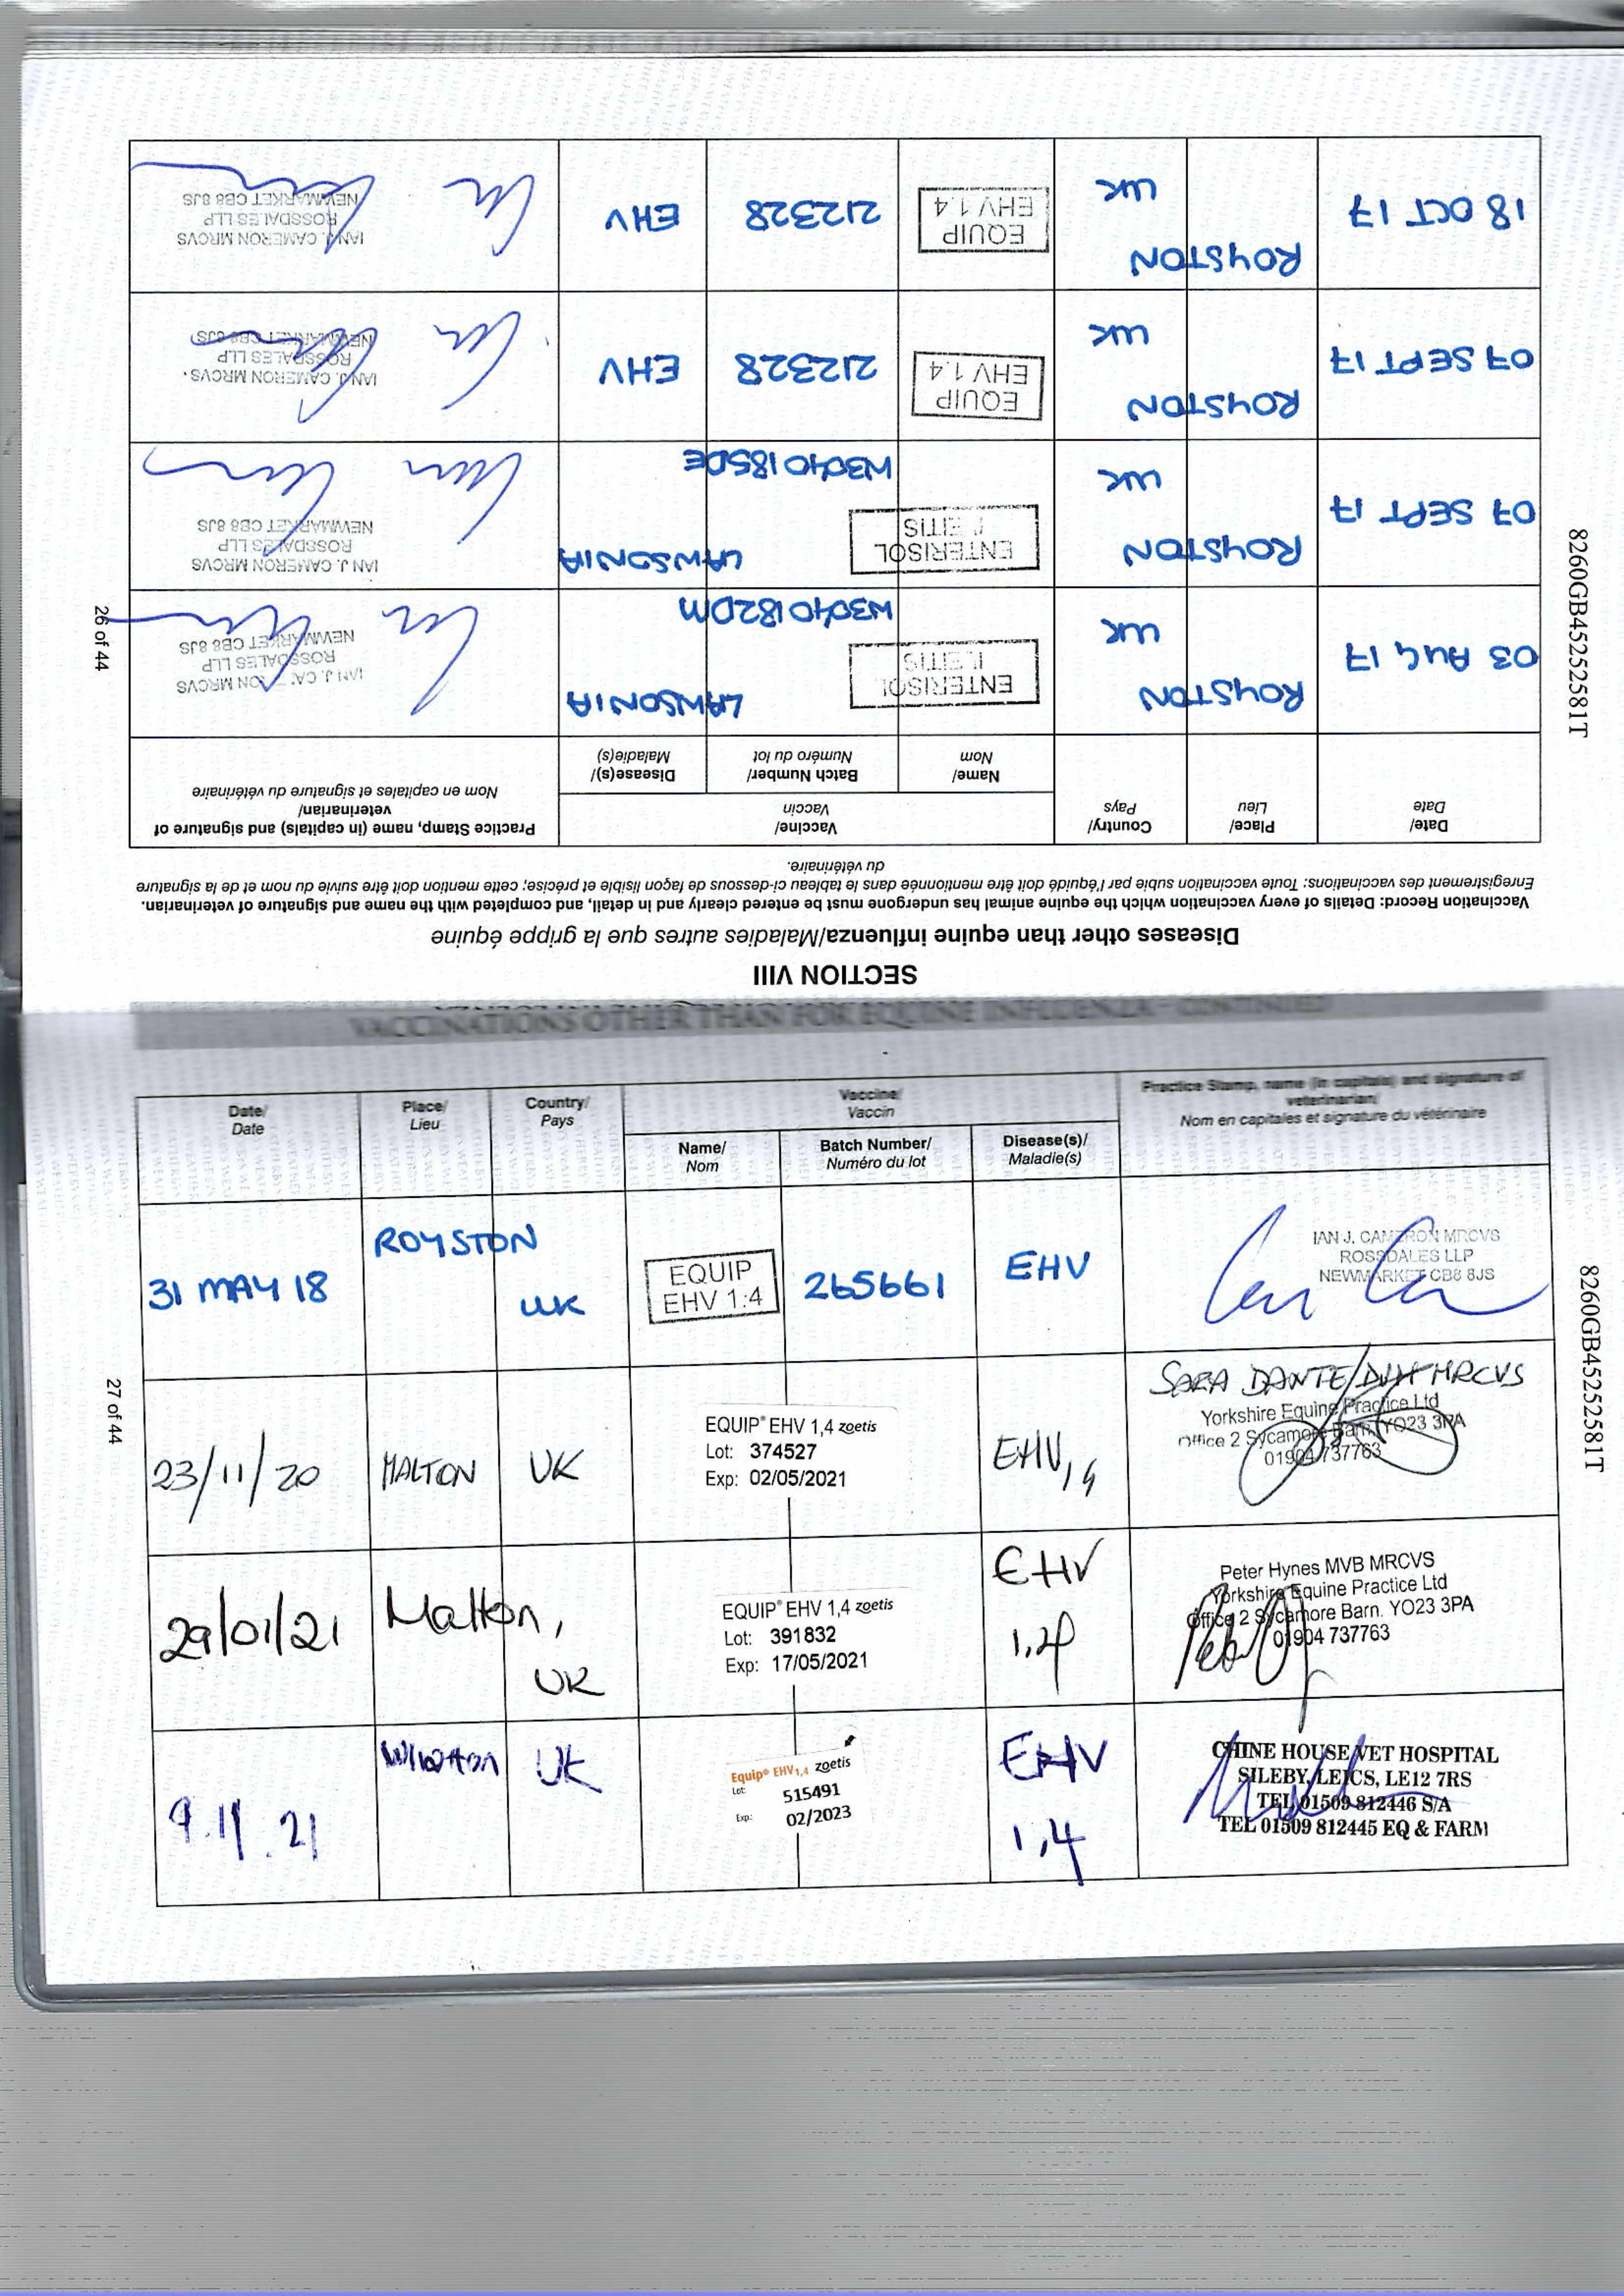 SECTION VIII
Diseases other than equine influenza/Maladies autres que la grippe équine
Vaccination Record: Details of every vaccination which the equine animal has undergone must be entered clearly and in detail, and completed with the name and signature of veterinarian.
Enregistrement des vaccinations: Toute vaccination subie par l'équidé doit être mentionnée dans le tableau ci-dessous de façon lisible et précise; cette mention doit être suivie du nom et de la signature
du vétérinaire.
Date/
Date
Place/
Lieu
Country/
Pays
Vaccine/
Vaccin
Name/
Nom
Batch Number/
Numéro du lot
Disease(s)/
Maladie(s)
Practice Stamp, name (in capitals) and signature of
veterinarian/
Nom en capitales et signature du vétérinaire
03 AUG 17
ROYSTON
UK
ENTERISOL
ILEITIS
W3040182DM
LAWSONIA
IAN J. CAMERON MRCVS
ROSSDALES LLP
NEWMARKET CB8 8JS
07 SEPT 17
ROYSTON
UK
ENTERISOL
ILEITIS
W3040185DE
LAWSONIA
IAN J. CAMERON MRCVS
ROSSDALES LLP
NEWMARKET CB8 8JS
07 SEPT 17
ROYSTON
UK
EQUIP
EHV 1.4
212328
EHV
IAN J. CAMERON MRCVS.
ROSSDALES LLP
NEWMARKET CB8 8JS
18 OCT 17
ROYSTON
UK
EQUIP
EHV 1.4
212328
EHV
IAN J. CAMERON MRCVS
ROSSDALES LLP
NEWMARKET CB8 8JS
26 of 44
8260GB45252581T
VACCINATIONS OTHER THAN FOR EQUINE INFLUENZA - CONTINUED
Date/
Date
Place/
Lieu
Country/
Pays
Vaccine/
Vaccin
Name/
Nom
Batch Number/
Numéro du lot
Disease(s)/
Maladie(s)
Practice Stamp, name (in capitals) and signature of
veterinarian/
Nom en capitales et signature du vétérinaire
31 MAY 18
ROYSTON
UK
EQUIP
EHV 1:4
265661
EHV
IAN J. CAMERON MRCVS
ROSSDALES LLP
NEWMARKET CB8 8JS
23/11/20
MALTON
UK
EQUIP® EHV 1,4 zoetis
Lot: 374527
Exp: 02/05/2021
EHV1,4
SARA DANTE/DVM MRCVS
Yorkshire Equine Practice Ltd
Office 2 Sycamore Barn. YO23 3PA
01904 737763
29/01/21
Malton,
UK
EQUIP® EHV 1,4 zoetis
Lot: 391832
Exp: 17/05/2021
EHV
1,4
Peter Hynes MVB MRCVS
Yorkshire Equine Practice Ltd
Office 2 Sycamore Barn. YO23 3PA
01904 737763
9.11.21
UK
Equip® EHV1,4 zoetis
Lot: 515491
Exp: 02/2023
EHV
1,4
CHINE HOUSE VET HOSPITAL
SILEBY, LEICS, LE12 7RS
TEL 01509 812446 S/A
TEL 01509 812445 EQ & FARM
27 of 44
8260GB45252581T